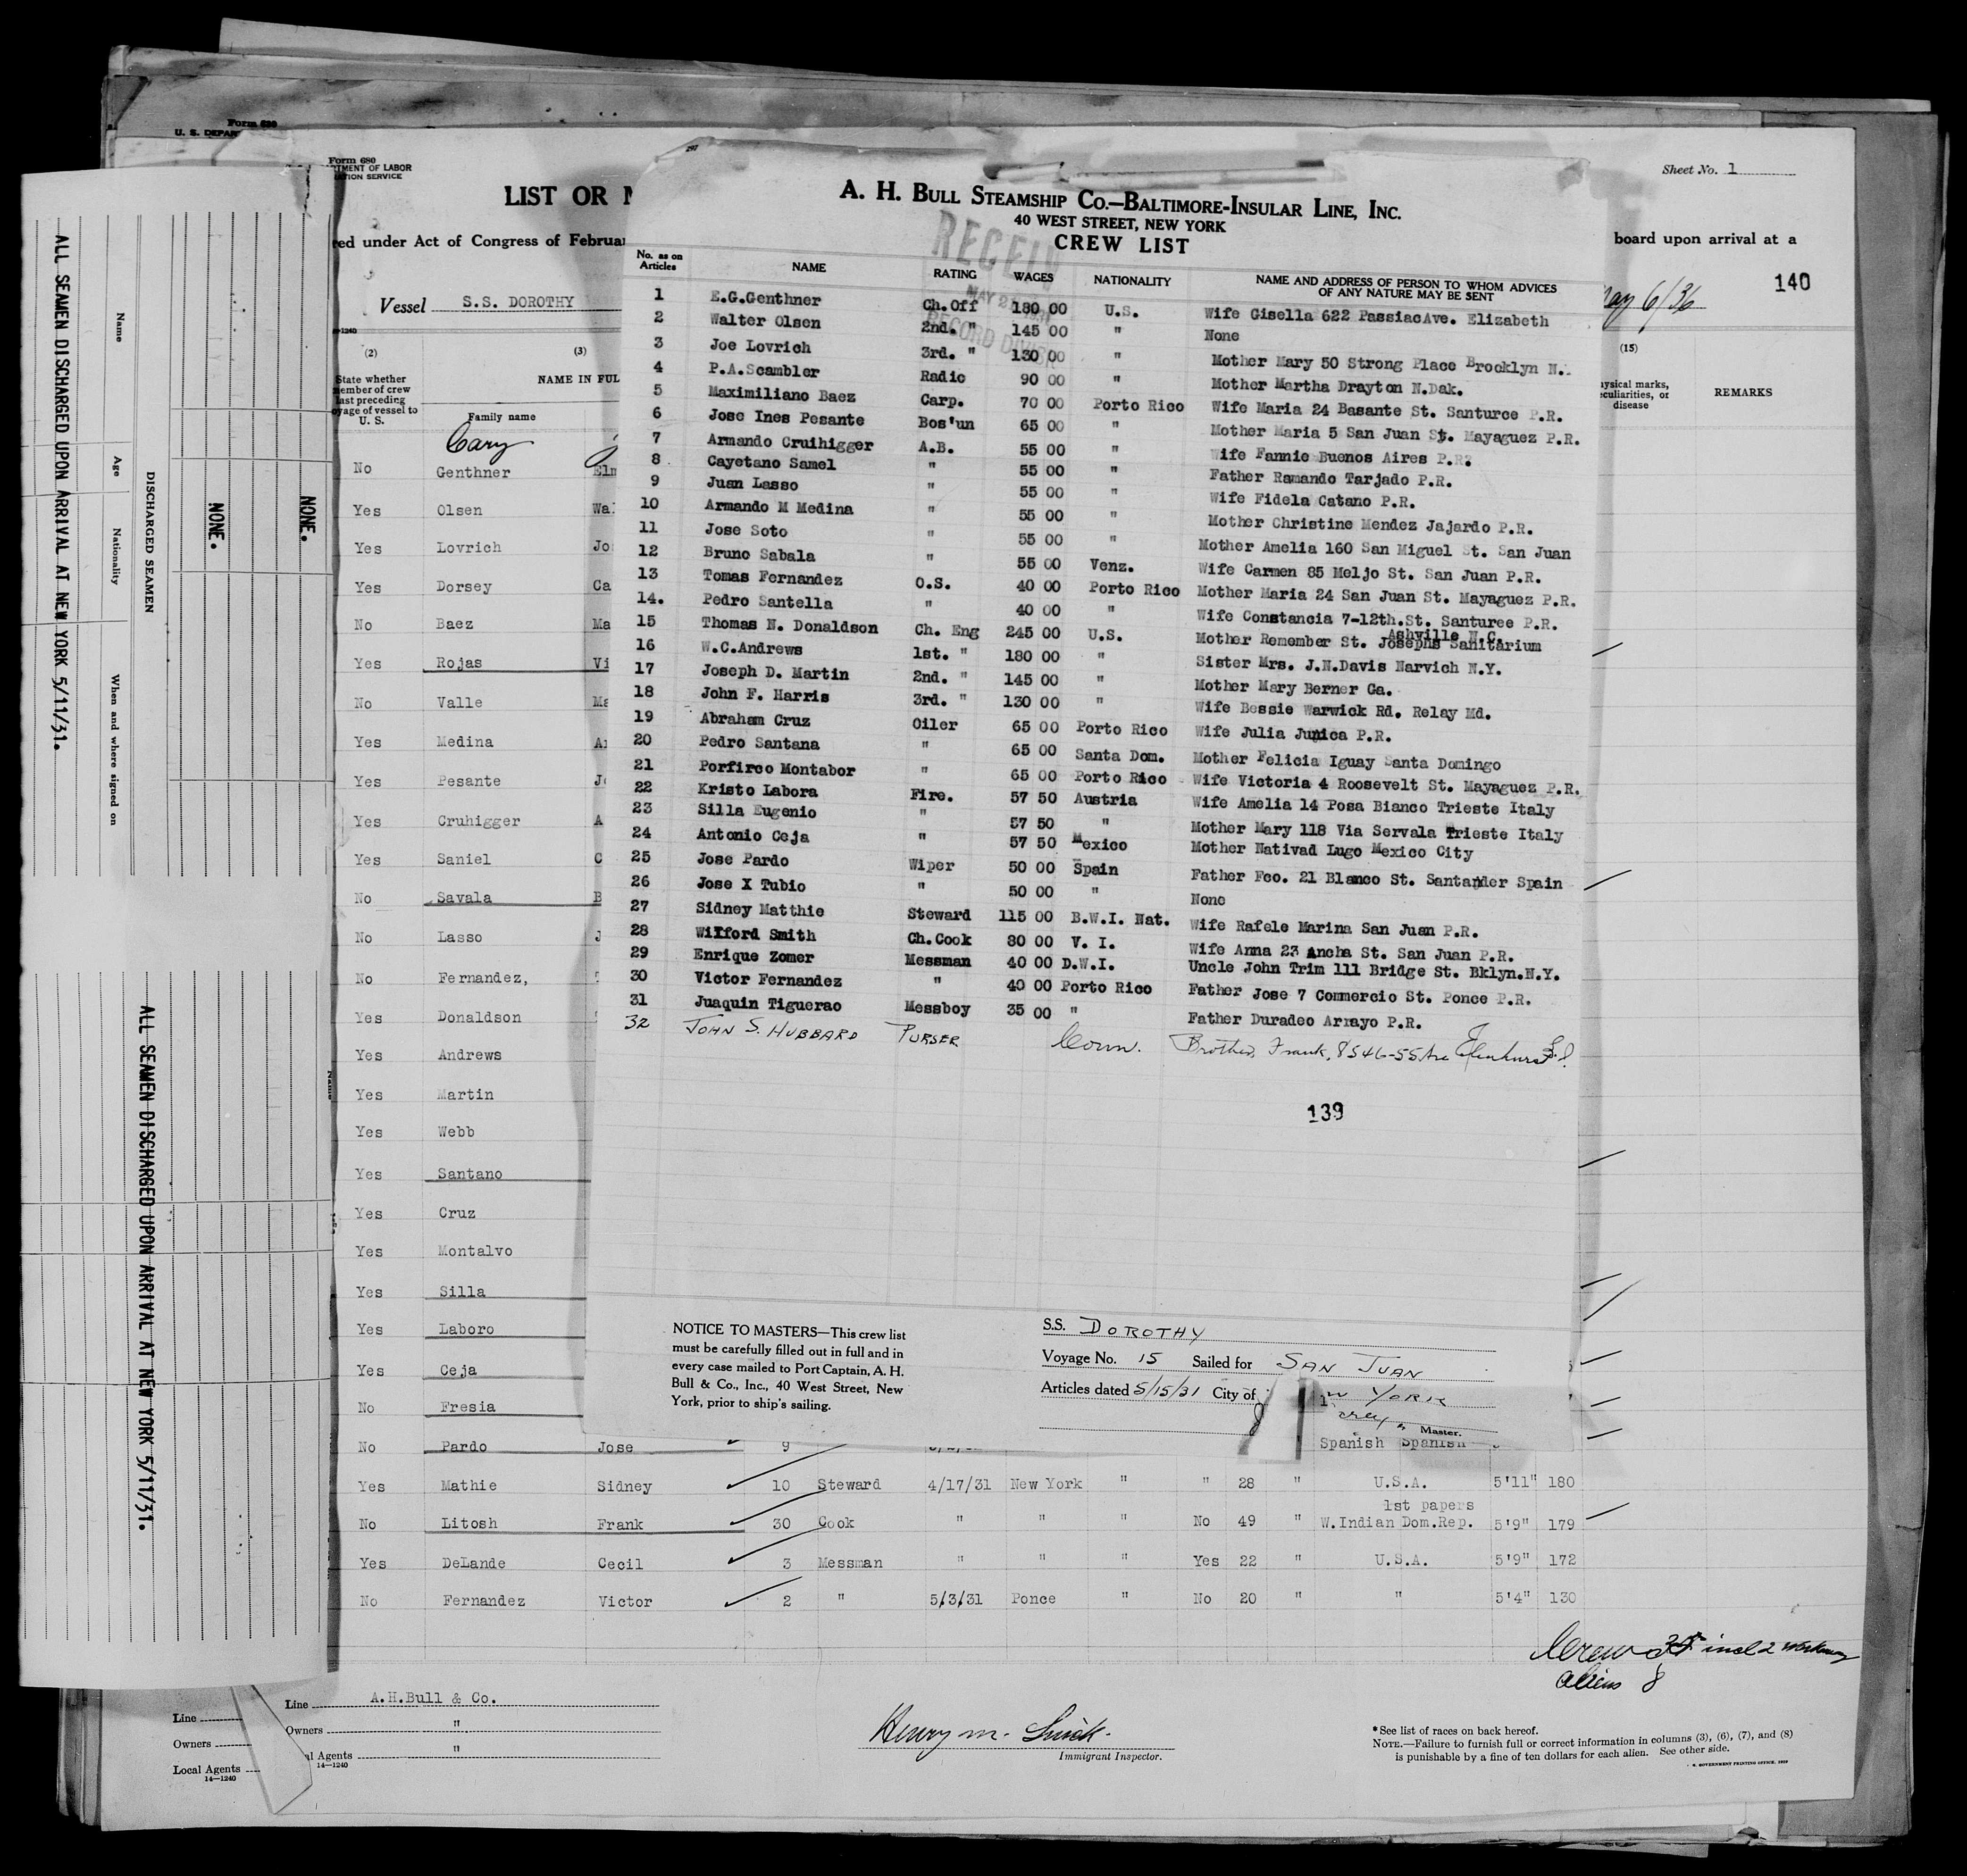 Form 680
U. S. DEPAR
Form 680
TMENT OF LABOR
TION SERVICE
LIST OR
ed under Act of Congress of Februar
Vessel S.S. DOROTHY
(2) (3)
State whether member of crew last preceding voyage of vessel to U. S.
NAME IN FUL
Family name
Cary
No Genthner Elm
Yes Olsen Wal
Yes Lovrich Jo
Yes Dorsey Ca
No Baez Ma
Yes Rojas Vi
No Valle Ma
Yes Medina Ar
Yes Pesante Jo
Yes Cruhigger A
Yes Saniel C
No Savala B
No Lasso J
No Fernandez,
Yes Donaldson
Yes Andrews
Yes Martin
Yes Webb
Yes Santano
Yes Cruz
Yes Montalvo
Yes Silla
Yes Laboro
Yes Ceja
No Fresia
No Pardo Jose 9 Spanish Spanish
Yes Mathie Sidney 10 Steward 4/17/31 New York " " 28 " U.S.A. 5'11" 180
1st papers
No Litosh Frank 30 Cook " " " No 49 " W.Indian Dom.Rep. 5'9" 179
Yes DeLande Cecil 3 Messman " " " Yes 22 " U.S.A. 5'9" 172
No Fernandez Victor 2 " 5/3/31 Ponce " No 20 " " 5'4" 130
Crew 35 incl 2 workaway
aliens 8
Line A.H.Bull & Co.
Owners "
al Agents "
14—1240
Line
Owners
Local Agents
14—1240
Henry M.
Immigrant Inspector.
*See list of races on back hereof.
NOTE.—Failure to furnish full or correct information in columns (3), (6), (7), and (8)
is punishable by a fine of ten dollars for each alien. See other side.
Sheet No. 1
board upon arrival at a
140
May 6/36
(15)
ysical marks, eculiarities, or disease
REMARKS
297
A. H. BULL STEAMSHIP CO.—BALTIMORE-INSULAR LINE, INC.
40 WEST STREET, NEW YORK
CREW LIST
RECEIV
MAY 2
RECORD DIVISI
No. as on Articles NAME RATING WAGES NATIONALITY NAME AND ADDRESS OF PERSON TO WHOM ADVICES OF ANY NATURE MAY BE SENT
1 E.G.Genthner Ch.Off 180 00 U.S. Wife Gisella 622 PassiacAve. Elizabeth
2 Walter Olsen 2nd. " 145 00 " None
3 Joe Lovrich 3rd. " 130 00 " Mother Mary 50 Strong Place Brooklyn N.
4 P.A.Scambler Radio 90 00 " Mother Martha Drayton N.Dak.
5 Maximiliano Baez Carp. 70 00 Porto Rico Wife Maria 24 Basante St. Santurce P.R.
6 Jose Ines Pesante Bos'un 65 00 " Mother Maria 5 San Juan St. Mayaguez P.R.
7 Armando Cruihigger A.B. 55 00 " Wife Fannie Buenos Aires P.R.
8 Cayetano Samel " 55 00 " Father Ramando Tarjado P.R.
9 Juan Lasso " 55 00 " Wife Fidela Catano P.R.
10 Armando M Medina " 55 00 " Mother Christine Mendez Jajardo P.R.
11 Jose Soto " 55 00 " Mother Amelia 160 San Miguel St. San Juan
12 Bruno Sabala " 55 00 Venz. Wife Carmen 85 Meljo St. San Juan P.R.
13 Tomas Fernandez O.S. 40 00 Porto Rico Mother Maria 24 San Juan St. Mayaguez P.R.
14. Pedro Santella " 40 00 " Wife Constancia 7-12th.St. Santuree P.R.
Ashville N.C.
15 Thomas N. Donaldson Ch. Eng 245 00 U.S. Mother Remember St. Josephs Sanitarium
16 W.C.Andrews 1st. " 180 00 " Sister Mrs. J.N.Davis Narvich N.Y.
17 Joseph D. Martin 2nd. " 145 00 " Mother Mary Berner Ga.
18 John F. Harris 3rd. " 130 00 " Wife Bessie Warwick Rd. Relay Md.
19 Abraham Cruz Oiler 65 00 Porto Rico Wife Julia Junica P.R.
20 Pedro Santana " 65 00 Santa Dom. Mother Felicia Iguay Santa Domingo
21 Porfirco Montabor " 65 00 Porto Rico Wife Victoria 4 Roosevelt St. Mayaguez P.R.
22 Kristo Labora Fire. 57 50 Austria Wife Amelia 14 Posa Bianco Trieste Italy
23 Silla Eugenio " 57 50 " Mother Mary 118 Via Servala Trieste Italy
24 Antonio Ceja " 57 50 Mexico Mother Nativad Lugo Mexico City
25 Jose Pardo Wiper 50 00 Spain Father Fco. 21 Blanco St. Santander Spain
26 Jose X Tubio " 50 00 " None
27 Sidney Matthie Steward 115 00 B.W.I. Nat. Wife Rafele Marina San Juan P.R.
28 Wilford Smith Ch.Cook 80 00 V. I. Wife Anna 23 Ancha St. San Juan P.R.
29 Enrique Zomer Messman 40 00 D.W.I. Uncle John Trim 111 Bridge St. Bklyn.N.Y.
30 Victor Fernandez " 40 00 Porto Rico Father Jose 7 Commercio St. Ponce P.R.
31 Juaquin Tiguerao Messboy 35 00 " Father Duradeo Arrayo P.R.
32 JOHN S. HUBBARD PURSER Conn. Brother, Frank, 8546-55 Ave Elmhurst L.I.
139
NOTICE TO MASTERS—This crew list
must be carefully filled out in full and in
every case mailed to Port Captain, A. H.
Bull & Co., Inc., 40 West Street, New
York, prior to ship's sailing.
S.S. DOROTHY
Voyage No. 15 Sailed for SAN JUAN
Articles dated 5/15/31 City of w YORK
Master.
ALL SEAMEN DISCHARGED UPON ARRIVAL AT NEW YORK 5/11/31.
Name Age Nationality When and where signed on
DISCHARGED SEAMEN
NONE.
NONE.
ALL SEAMEN DISCHARGED UPON ARRIVAL AT NEW YORK 5/11/31.